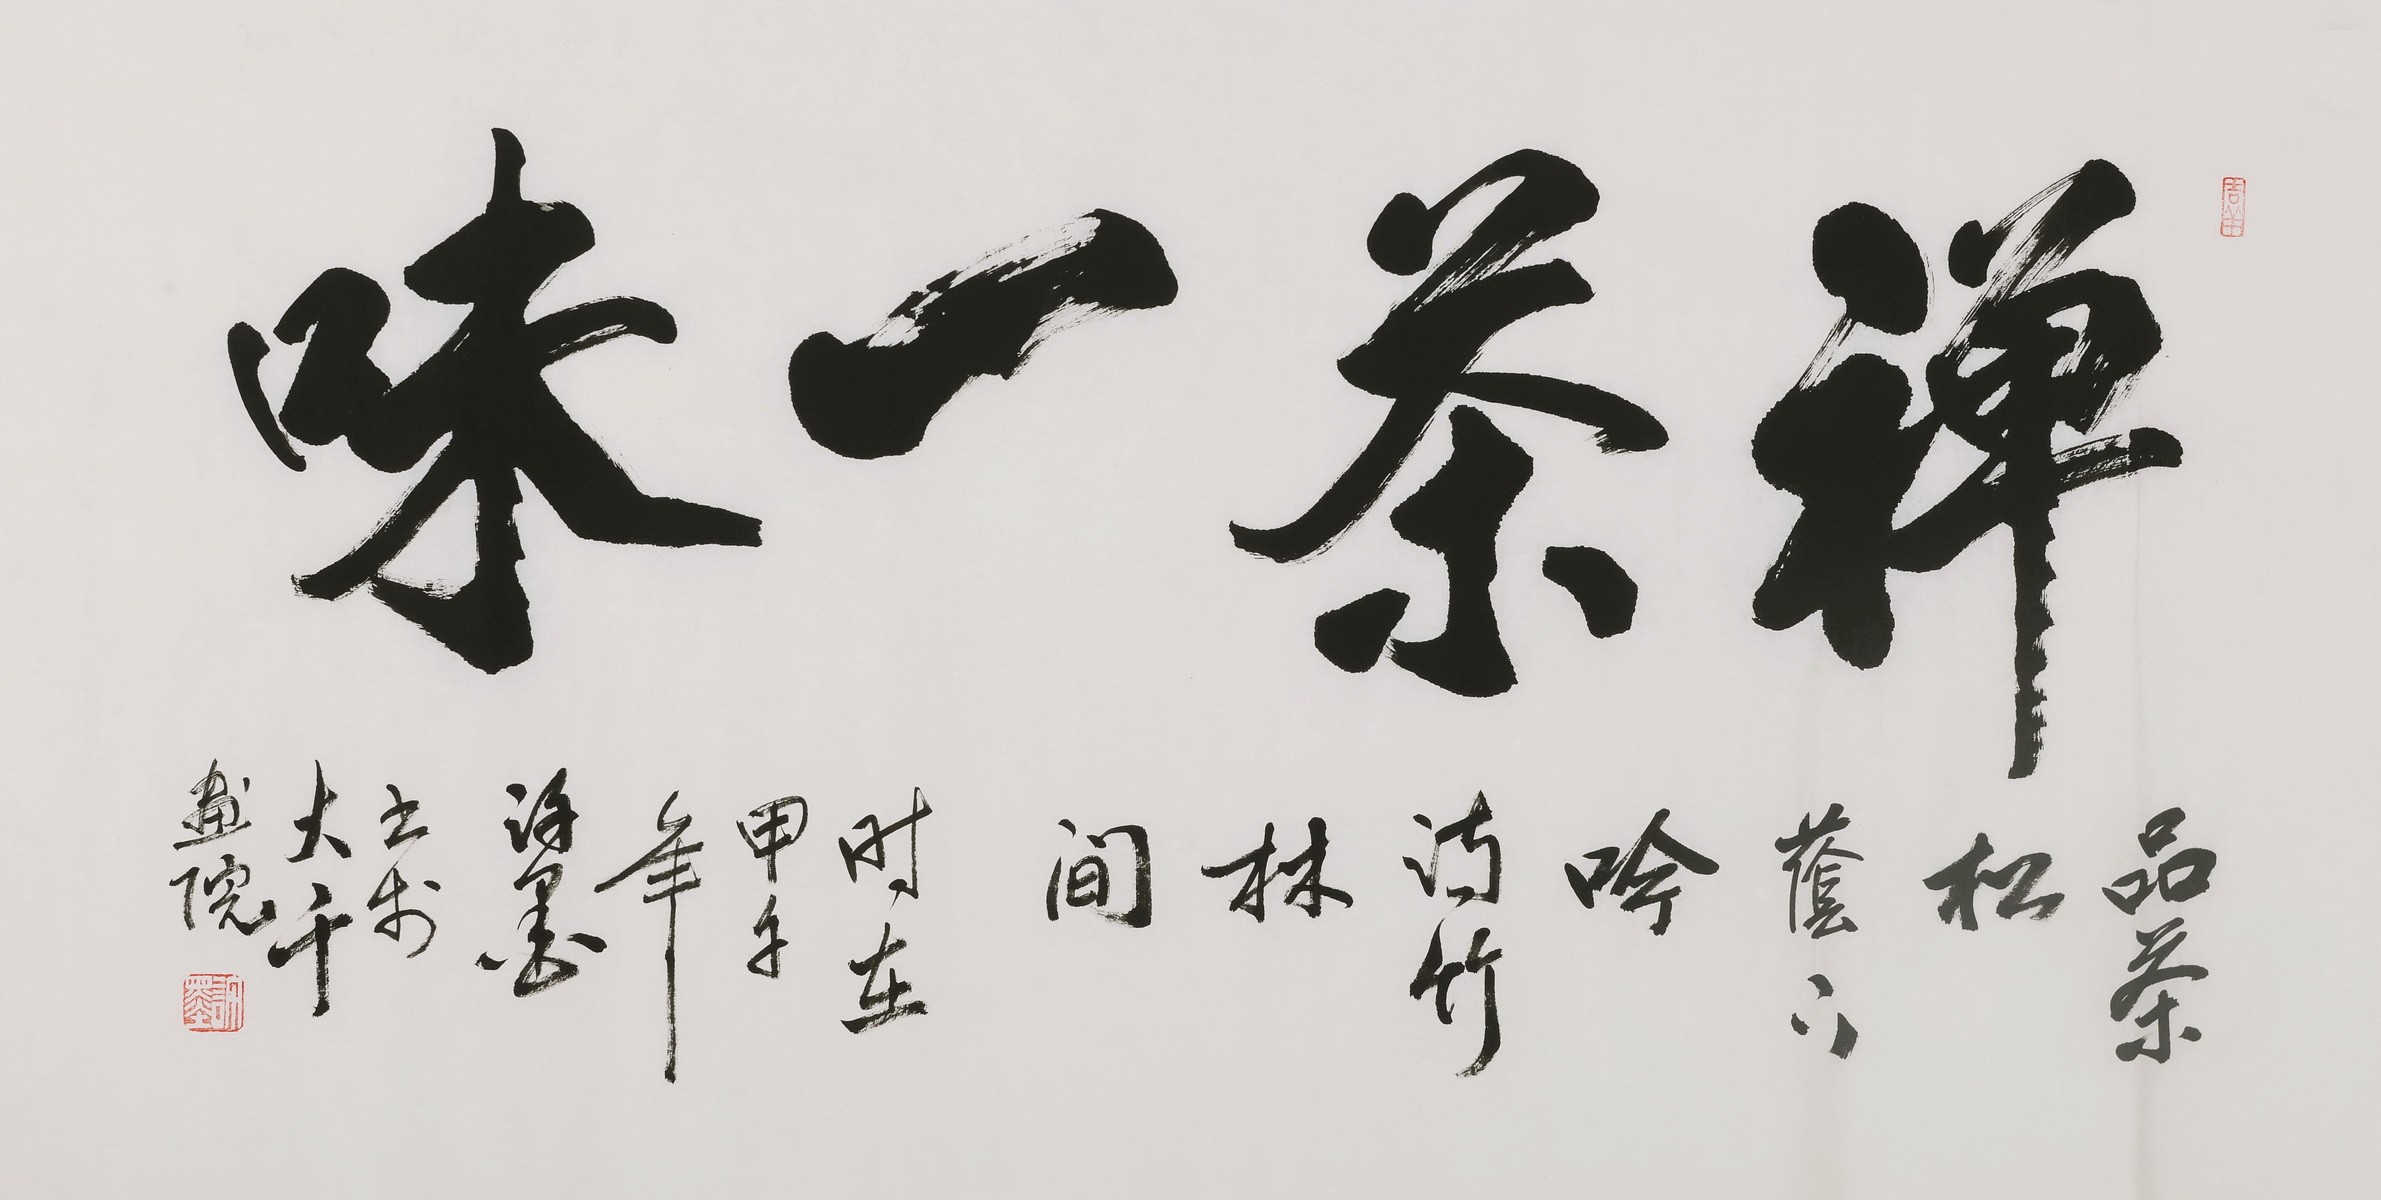 禅茶一味
品茶
松
蔭下
吟
诗竹
林
间
时在
甲午
年
许墨
书于
大千
画院